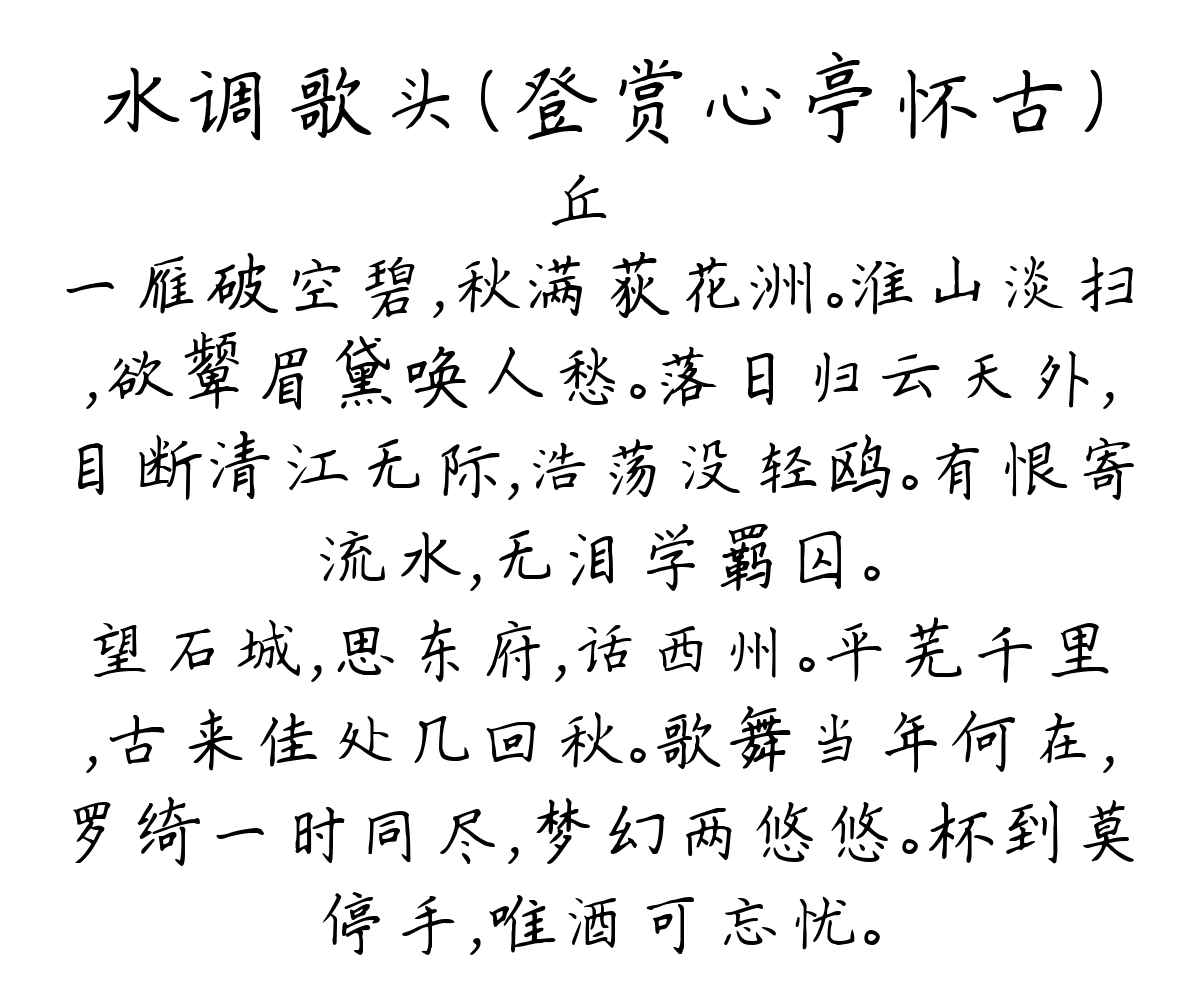 水调歌头(登赏心亭怀古)
丘
一雁破空碧,秋满荻花洲。淮山淡扫
,欲颦眉黛唤人愁。落日归云天外,
目断清江无际,浩荡没轻鸥。有恨寄
流水,无泪学羁囚。
望石城,思东府,话西州。平芜千里
,古来佳处几回秋。歌舞当年何在,
罗绮一时同尽,梦幻两悠悠。杯到莫
停手,唯酒可忘忧。